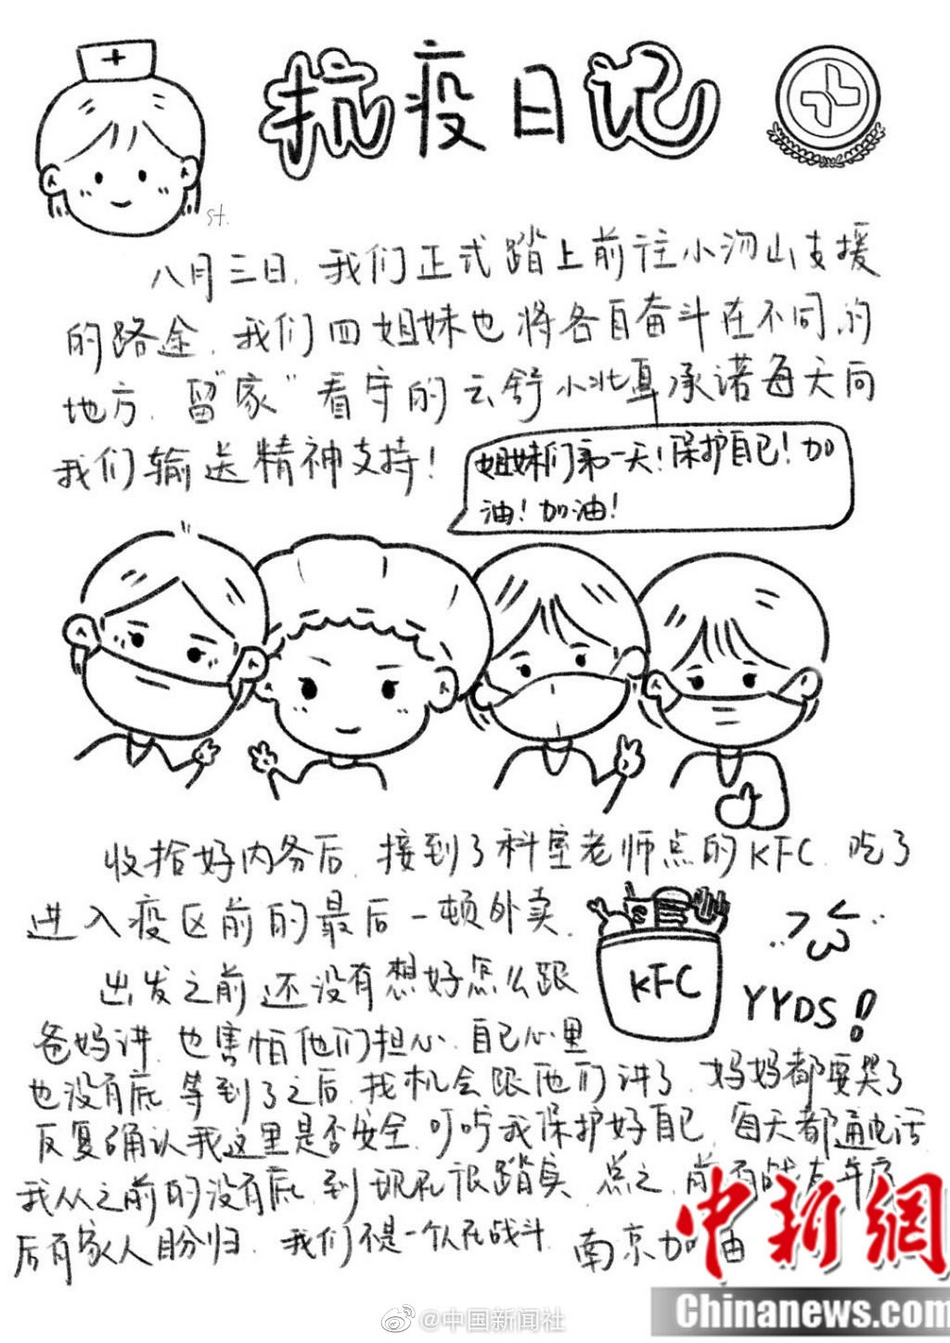 抗疫日记
st.
八月三日,我们正式踏上前往小汤山支援
的路途,我们四姐妹也将各自奋斗在不同的
地方,留"家"看守的云舒小北鼻承诺每天向
我们输送精神支持!
姐妹们第一天!保护自己!加
油!加油!
收拾好内务后,接到了科室老师点的KFC,吃了
进入疫区前的最后一顿外卖,
KFC
YYDS!
出发之前还没有想好怎么跟
爸妈讲,也害怕他们担心,自己心里
也没有底,等到了之后,找机会跟他们讲了,妈妈都要哭了
反复确认我这里是否安全,叮咛我保护好自己,每天都通电话
我从之前的没有底,到现在很踏实,总之,前有
后有家人盼归,我们不是一个人在战斗,南京加油
中新网
Chinanews.com
@中国新闻社